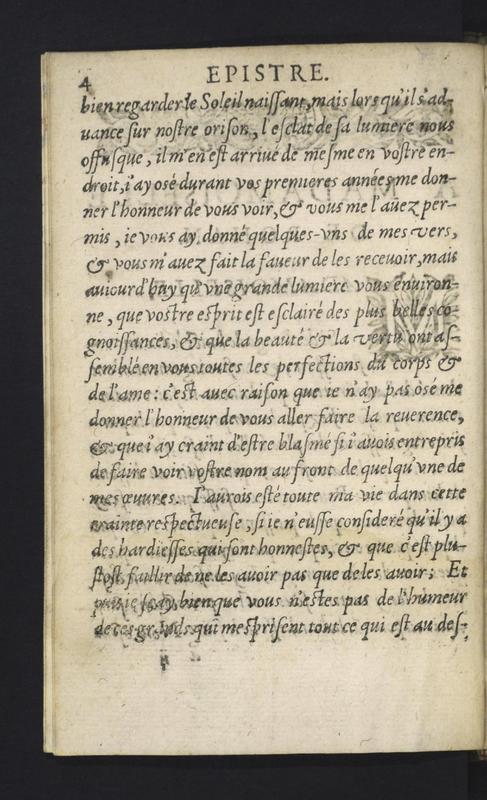 4
EPISTRE.
bien regarder le Soleil naissant, mais lors qu'il s'ad-
uance sur nostre orison, l'esclat de sa lumiere nous
offusque, il m'en est arriué de mesme en vostre en-
droit, i'ay osé durant vos premieres années me don-
ner l'honneur de vous voir, & vous me l'auez per-
mis, ie vous ay donné quelques-vns de mes vers,
& vous m'auez fait la faueur de les receuoir, mais
auiourd'huy qu'vne grande lumiere vous enuiron-
ne, que vostre esprit est esclairé des plus belles co-
gnoissances, & que la beauté & la vertu ont as-
semblé en vous toutes les perfections du corps &
de l'ame: c'est auec raison que ie n'ay pas osé me
donner l'honneur de vous aller faire la reuerence,
& que i'ay craint d'estre blasmé si i'auois entrepris
de faire voir vostre nom au front de quelqu'vne de
mes œuures. I'aurois esté toute ma vie dans cette
crainte respectueuse, si ie n'eusse consideré qu'il y a
des hardiesses qui sont honnestes, & que c'est plu-
stost faillir de ne les auoir pas que de les auoir; Et
puis ie sçay bien que vous n'estes pas de l'humeur
de ces grands qui mesprisent tout ce qui est au des-